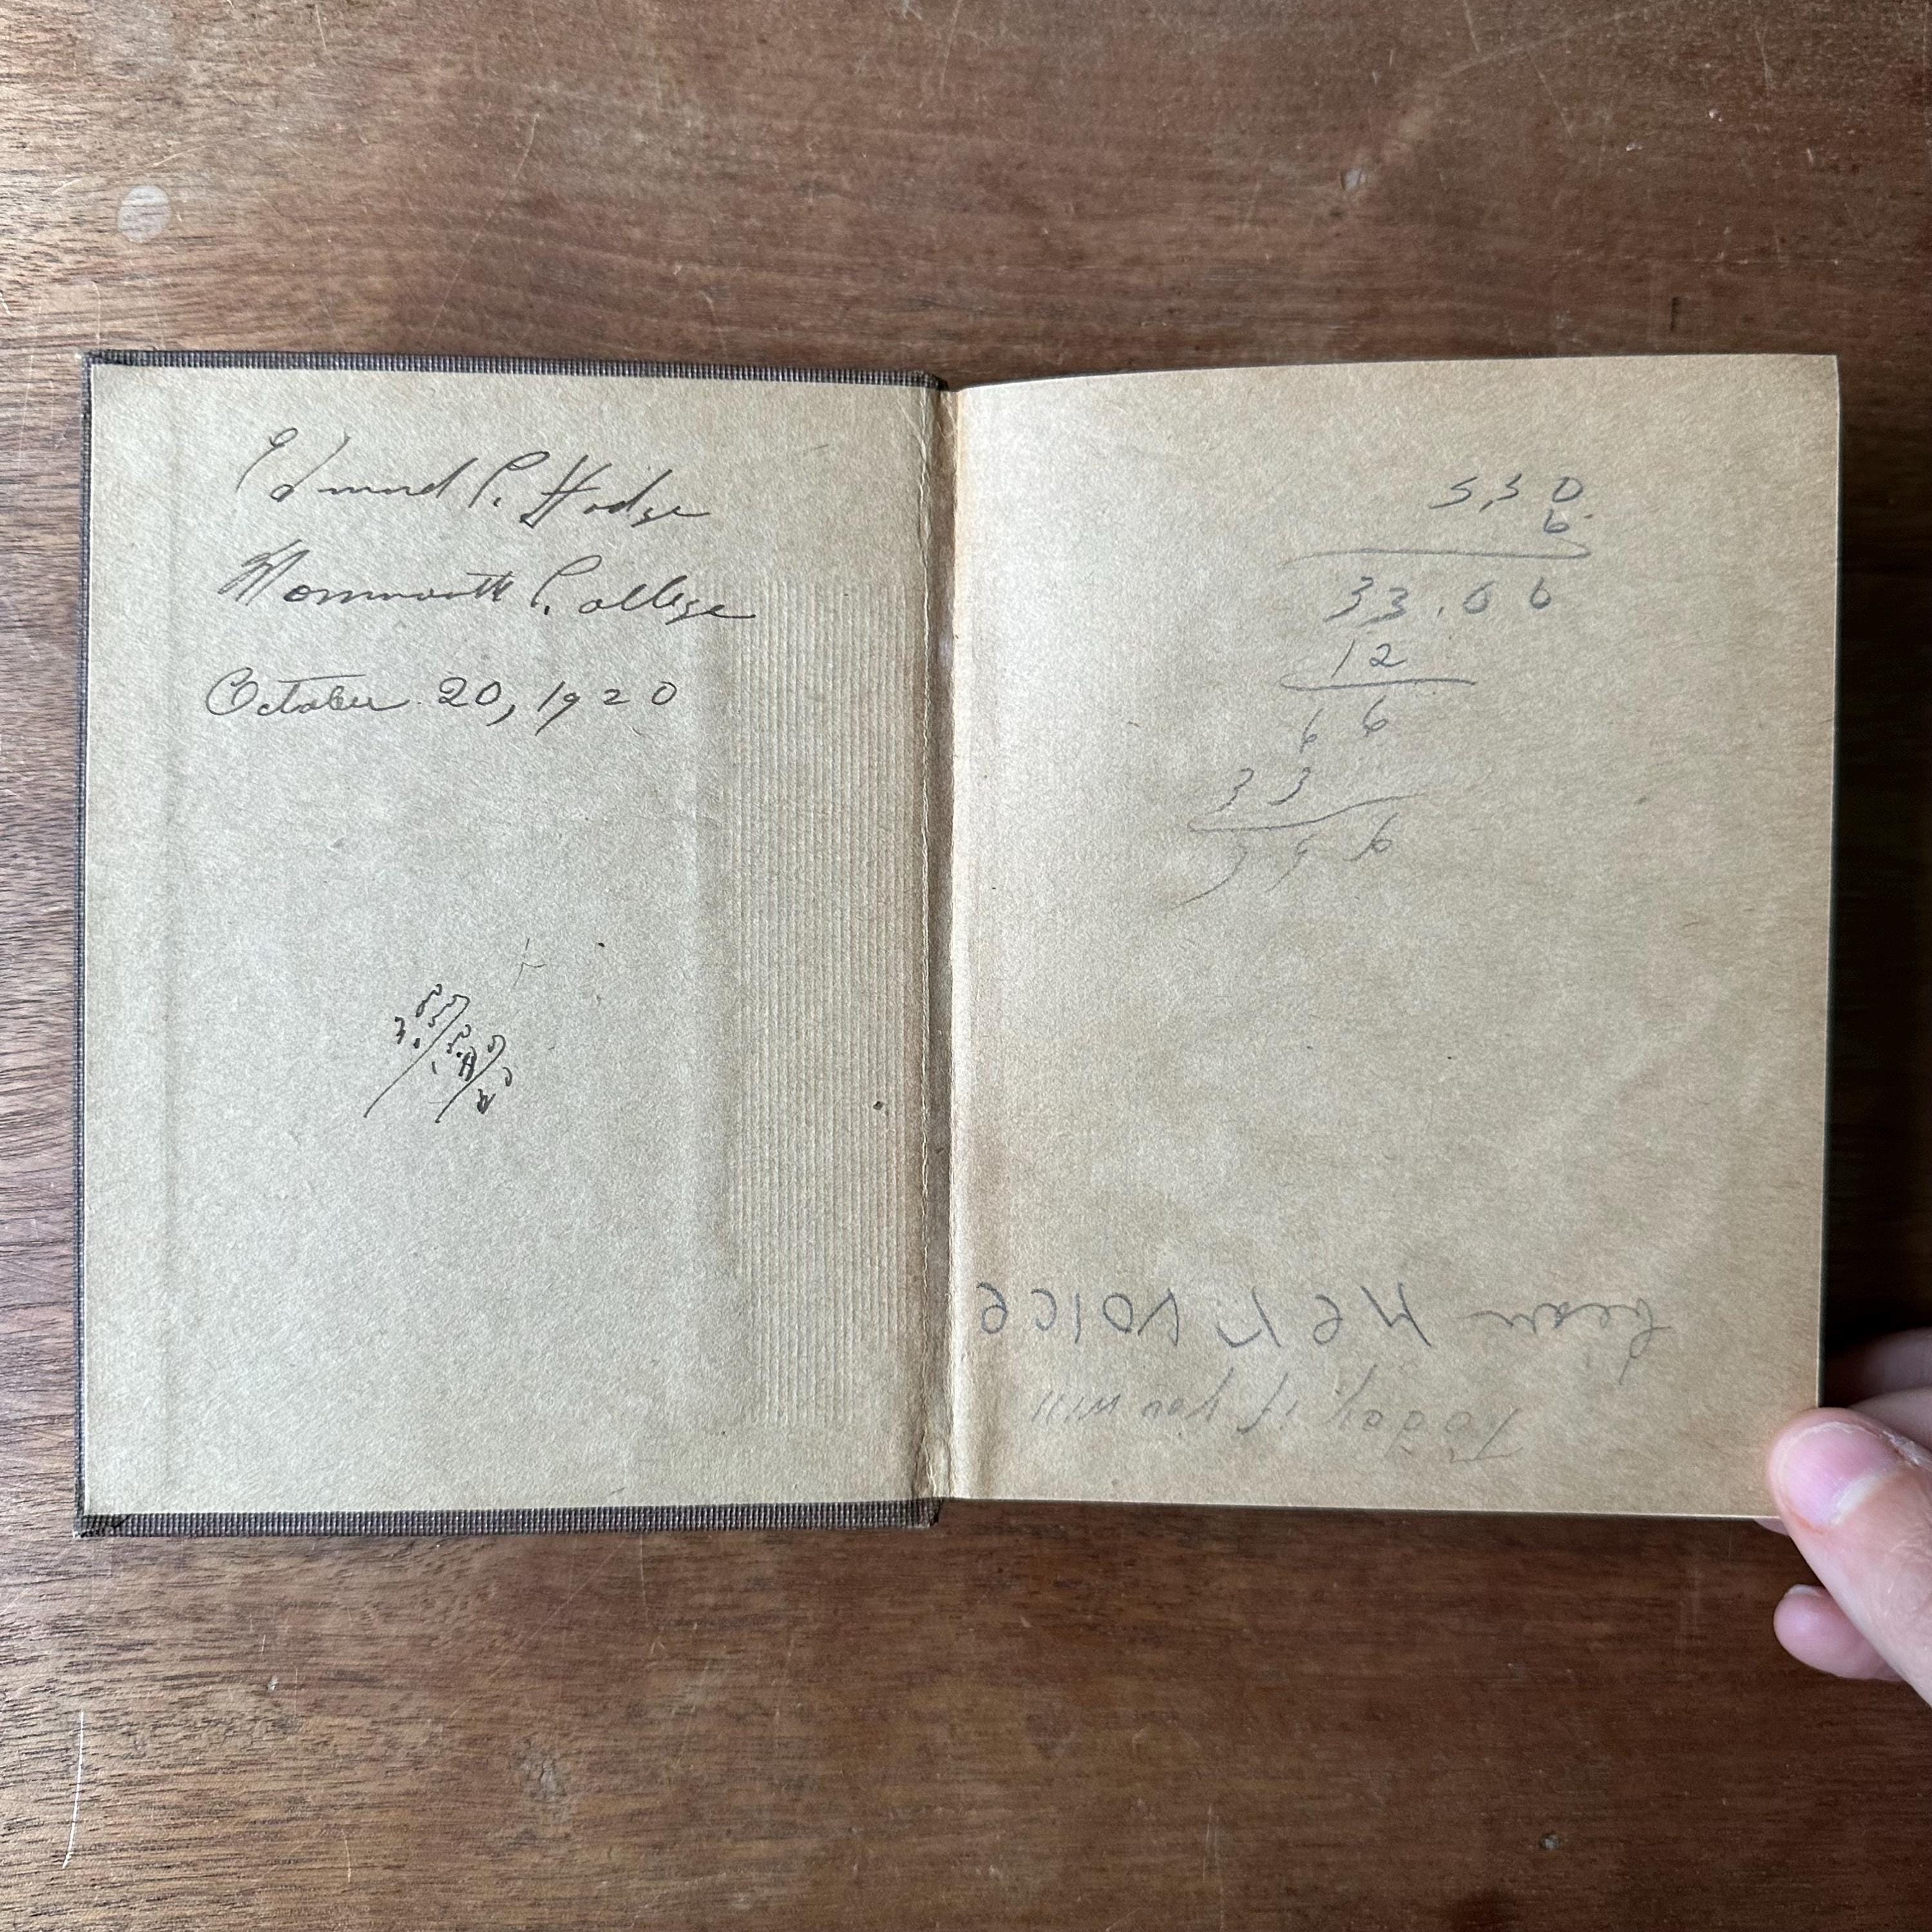 Edmund P. Hodge
Monmouth College
October 20, 1920
5,50
6
33.00
12
66
33
396
Today if you will
hear Her voice